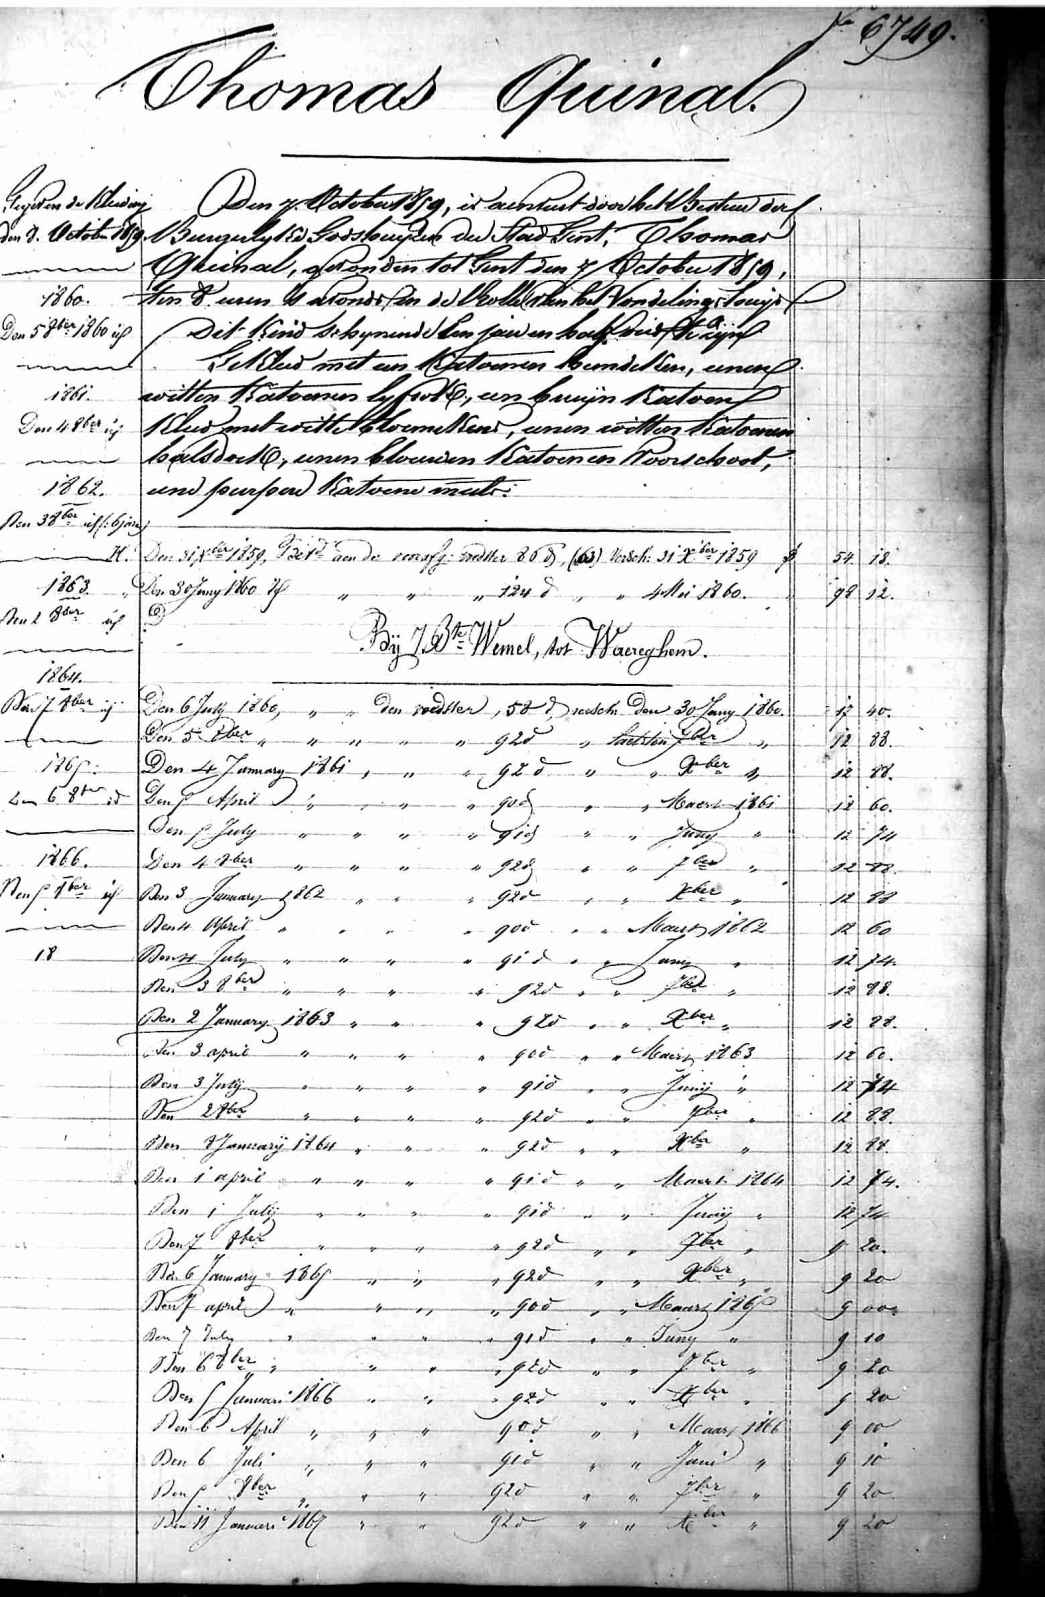 No 6749.
Thomas Quinal.
Gegeven de Kleeding
den 8. October 1859
1860.
Den 5 8ber 1860 id
1861.
Den 4 8ber id
1862.
Den 3 8ber id
H.
1863.
Den 2 8ber id
1864.
Den 7 8ber id
1865.
Den 6 8ber id
1866.
Den 5 8ber id
18
Den 7. October 1859, is aenveert door het Bestuur der
Burgerlyke Godshuyzen der Stad Gent, Thomas
Quinal, gevonden tot Gent den 7 October 1859,
ten 8 uren 's avonds in de Rolle van het Vondelingshuys
Dit Kind schynende een jaer en half oud te zyn
Gekleed met een Katoenen hemdeken, eenen
witten Katoenen lyfrok, een bruyn Katoen
Kleed met witte bloemekens, eenen witten Katoenen
halsdoek, eenen blauwen Katoenen Voorschoot,
eene purpere Katoene muts.
Den 31 Xber 1859, Bet. aen de voedster 86 d, (63) versch. 31 Xber 1859 54 18.
Den 30 Juny 1860 Id " " " 124 d " " 4 Mei 1860. 98 12.
By J. Bte Wemel, tot Waereghem.
Den 6 July 1860, " " den voedster, 58 d, versch. den 30 Juny 1860. 12 40.
Den 5 8ber " " " " " 92 d " 7ber " 12 88.
Den 4 January 1861 " " " 92 d " " Xber " 12 88.
Den 5 April " " " " 90 d " " Maert 1861 12 60.
Den 5 July " " " " 91 d " " Juny " 12 74
Den 4 8ber " " " " 92 d " " 7ber " 12 88.
Den 3 January 1862 " " " 92 d " " Xber " 12 88
Den 4 April " " " " 90 d " " Maert 1862 12 60
Den 4 July " " " " 91 d " " Juny " 12 74.
Den 3 8ber " " " " 92 d " " 7ber " 12 88.
Den 2 January 1863 " " " 92 d " " Xber " 12 88.
Den 3 april " " " " 90 d " " Maert 1863 12 60.
Den 3 July " " " " 91 d " " Juny " 12 74
Den 2 8ber " " " " 92 d " " 7ber " 12 88.
Den 8 January 1864 " " " 92 d " " Xber " 12 88.
Den 1 april " " " " 91 d " " Maert 1864 12 74.
Den 1 July " " " " 91 d " " Juny " 12 74
Den 7 8ber " " " " 92 d " " 7ber " 9 20.
Den 6 January 1865 " " " 92 d " " Xber " 9 20
Den 7 april " " " " 90 d " " Maert 1865 9 00
Den 7 July " " " " 91 d " " Juny " 9 10
Den 6 8ber " " " 92 d " " 7ber " 9 20
Den 5 Januari 1866 " " " 92 d " " Xber " 9 20
Den 6 April " " " 90 d " " Maart 1866 9 00
Den 6 Juli " " " 91 d " " Juni " 9 10
Den 5 8ber " " " 92 d " " 7ber " 9 20
Den 11 Januari 1867 " " 92 d " " Xber " 9 20